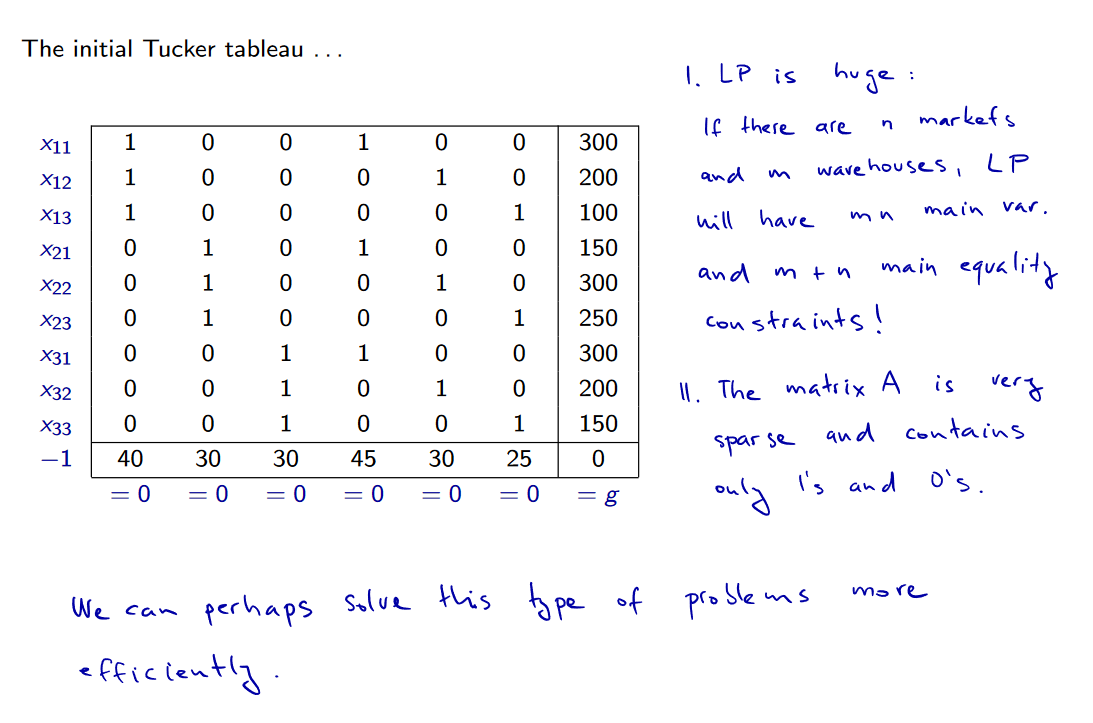 The initial Tucker tableau . . .
x11 1 0 0 1 0 0 300
x12 1 0 0 0 1 0 200
x13 1 0 0 0 0 1 100
x21 0 1 0 1 0 0 150
x22 0 1 0 0 1 0 300
x23 0 1 0 0 0 1 250
x31 0 0 1 1 0 0 300
x32 0 0 1 0 1 0 200
x33 0 0 1 0 0 1 150
−1 40 30 30 45 30 25 0
= 0 = 0 = 0 = 0 = 0 = 0 = g
I. LP is huge :
If there are n markets
and m warehouses, LP
will have mn main var.
and m + n main equality
constraints!
II. The matrix A is very
sparse and contains
only 1's and 0's.
We can perhaps solve this type of problems more
efficiently.